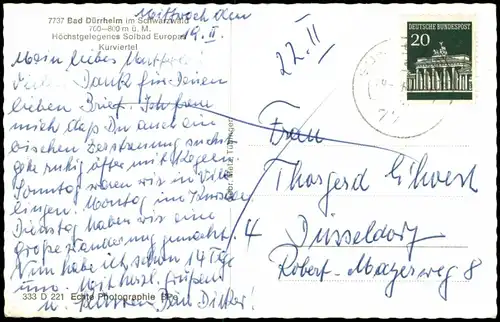 Mittwoch den
19. II.
7737 Bad Dürrheim im Schwarzwald
700–800 m ü. M.
Höchstgelegenes Solbad Europas
Kurviertel
Mein liebes
Vielen Dank für Deinen
lieben Brief. Ich freu
mich daß Du auch ein
bischen Zerstreuung suchst
gehe ruhig öfter mit Kegeln
Sonntag waren wir in Vil
lingen. Montag im
Dienstag haben wir eine
große Wanderung gemacht.
Nun habe ich schon 14 Tage
um. Mit herzl. Grüßen
u. Küssen Dein
333 D 221 Echte Photographie
22. II
DEUTSCHE BUNDESPOST
20
Frau
Thorgerd
4 Düsseldorf
Robert-Mayerweg 8